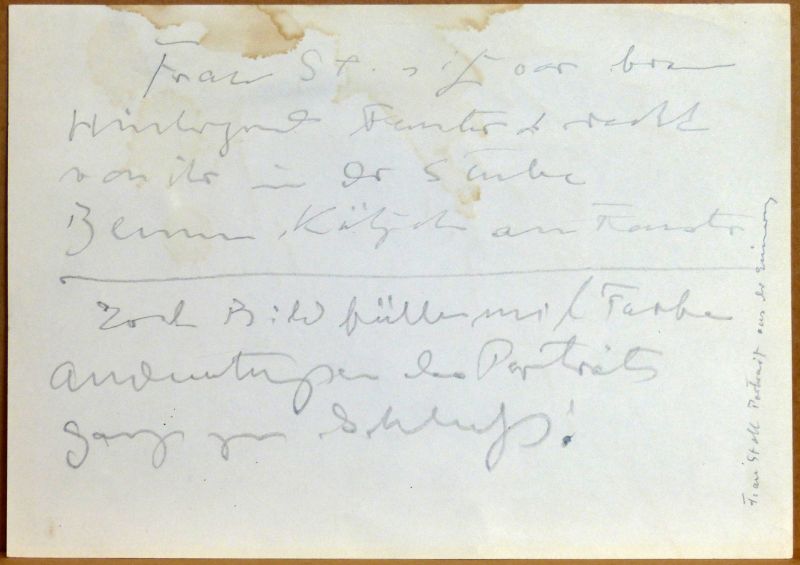 Frau St. sitzt vor dem
Hintergrund Fenster rechts
von ihr in der Stube
Kätzch am Fenster
Bild füllen mit Farbe
Andeutungen des Porträts
ganz zum Schluß!
Frau Stoll Portrait aus der Erinnerung